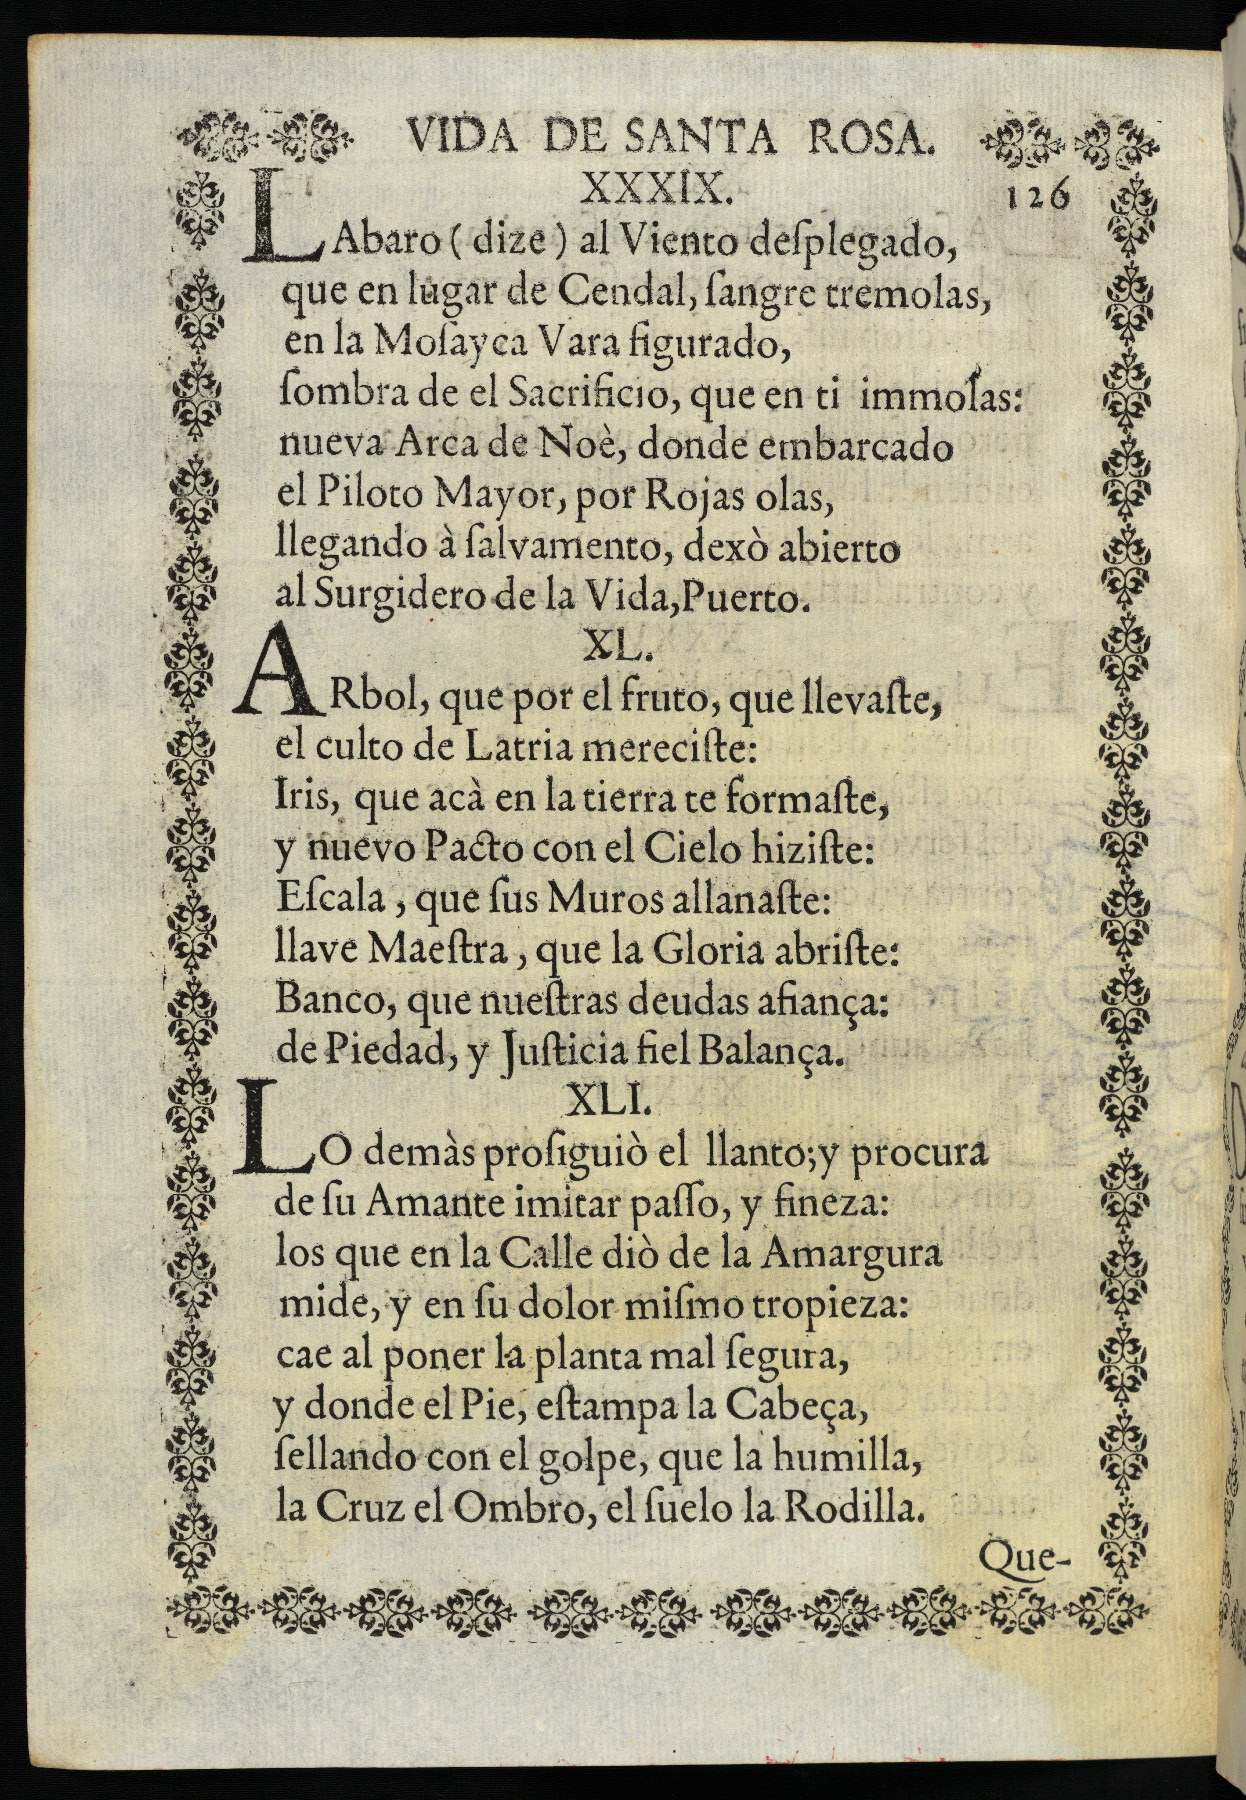 VIDA DE SANTA ROSA.
XXXIX. 126
LAbaro ( dize ) al Viento deſplegado,
que en lugar de Cendal, ſangre tremolas,
en la Moſayca Vara figurado,
ſombra de el Sacrificio, que en ti immolas:
nueva Arca de Noè, donde embarcado
el Piloto Mayor, por Rojas olas,
llegando à ſalvamento, dexò abierto
al Surgidero de la Vida,Puerto.
XL.
ARbol, que por el fruto, que llevaſte,
el culto de Latria mereciſte:
Iris, que acà en la tierra te formaſte,
y nuevo Pacto con el Cielo hiziſte:
Eſcala , que ſus Muros allanaſte:
llave Maeſtra , que la Gloria abriſte:
Banco, que nueſtras deudas afiança:
de Piedad, y Juſticia fiel Balança.
XLI.
LO demàs proſiguiò el llanto;y procura
de ſu Amante imitar paſſo, y fineza:
los que en la Calle diò de la Amargura
mide, y en ſu dolor miſmo tropieza:
cae al poner la planta mal ſegura,
y donde el Pie, eſtampa la Cabeça,
ſellando con el golpe, que la humilla,
la Cruz el Ombro, el ſuelo la Rodilla.
Que-